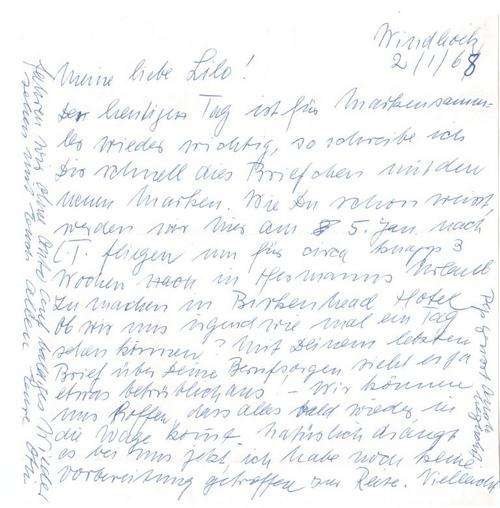 Windhoek
2/1/68
Meine liebe Lilo!
Der heutige Tag ist für Markensamm-
ler wieder wichtig, so schreibe ich
Dir schnell dies Briefchen mit den
neuen Marken. Wie Du schon weisst
werden wir hier am 5. Jan. nach
C.T. fliegen um für circa knapp 3
Wochen nach in Hermanns Urlaub
zu machen in Birkenhead Hotel
Ob wir uns irgendwie mal ein Tag
sehen können? Mit Deinem letzten
Brief über Deine Berufsorgen sieht es ja
etwas betrüblich aus! Wir können
uns hoffen, dass alles bald wieder in
die Wage kommt. Natürlich drängt
es bei uns jetzt, ich habe noch keine
Vorbereitung getroffen zur Reise. Vielleicht